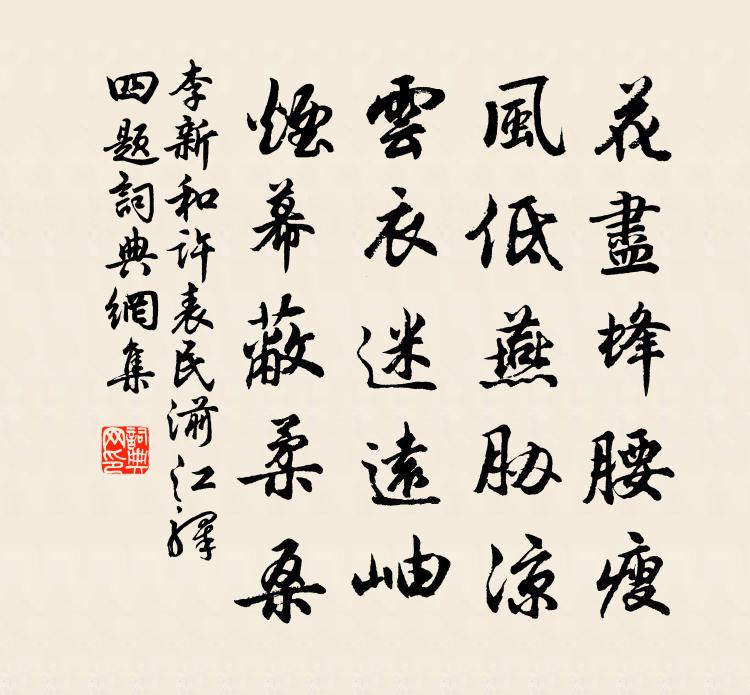 花盡蜂腰瘦
風低燕胁涼
雲衣迷遠岫
煙幕蔽柔桑
李新和許表民湔江驛
四題詞典網集
詞典
网印